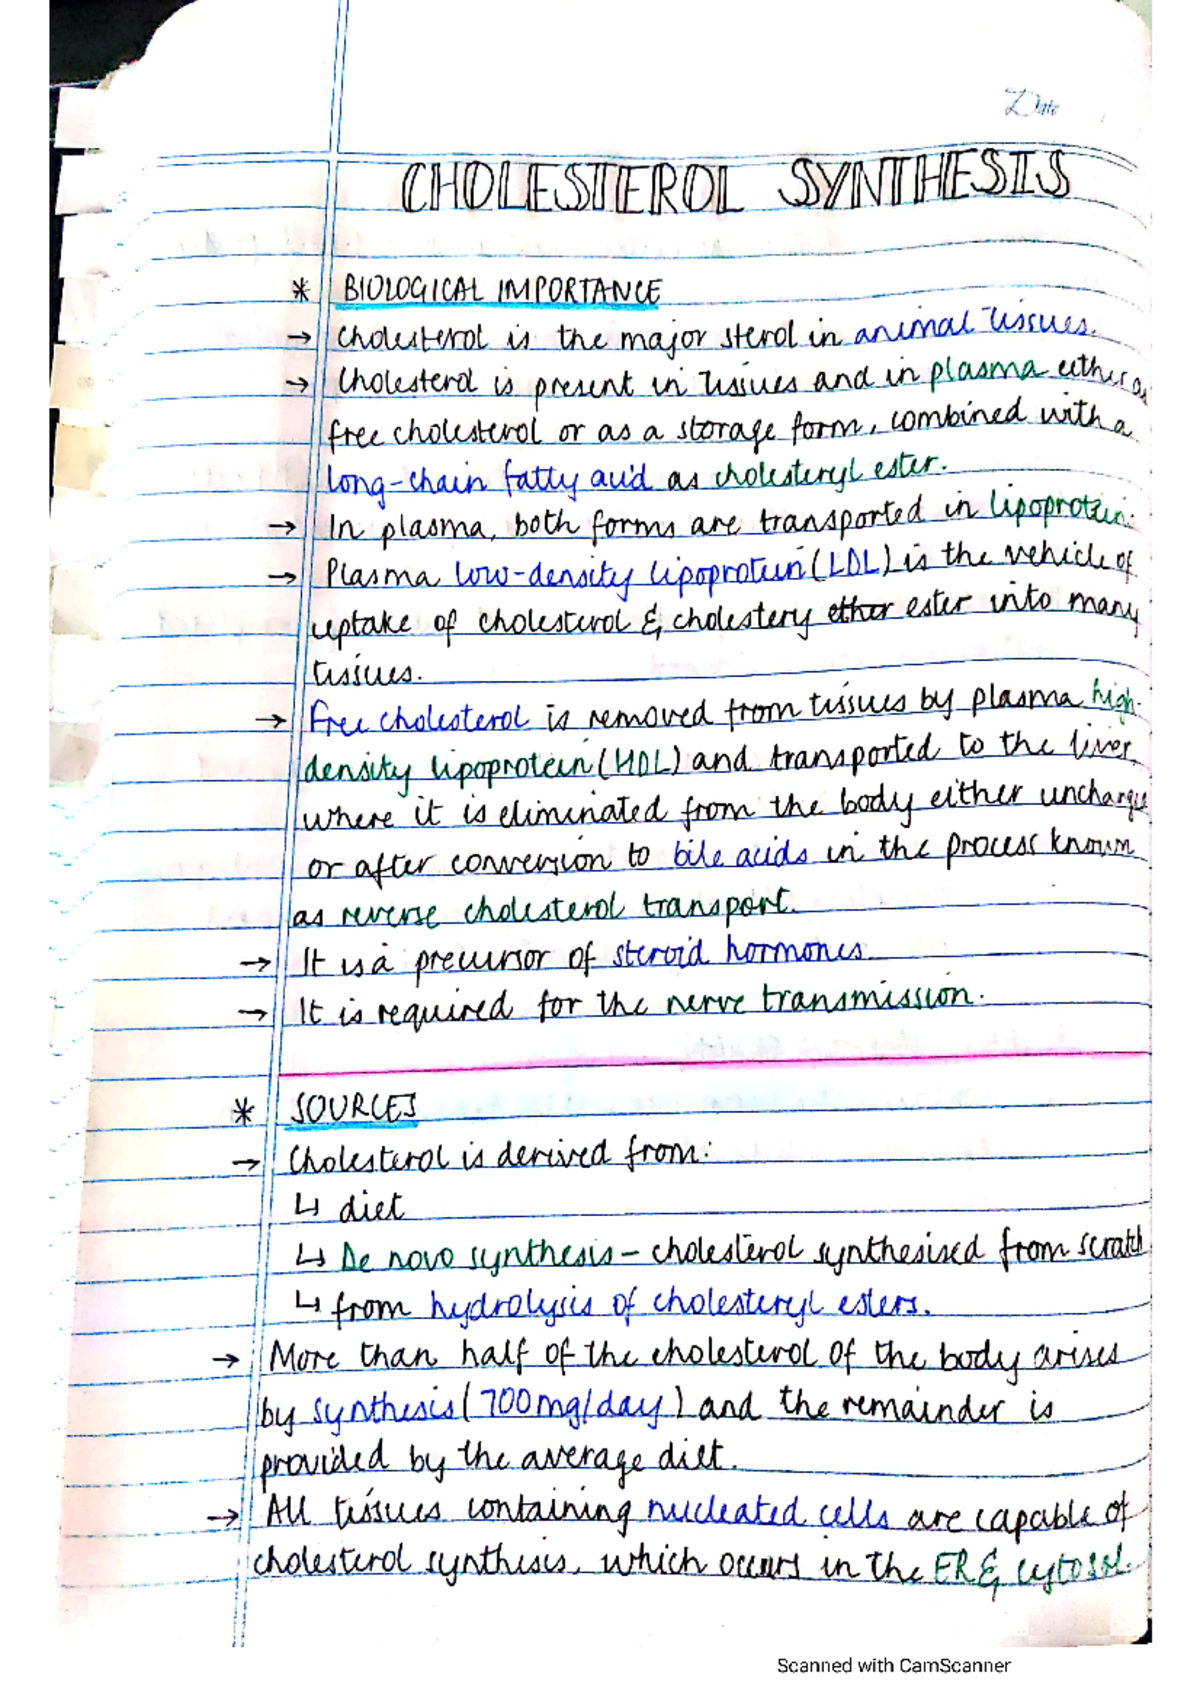 Date
CHOLESTEROL SYNTHESIS
* BIOLOGICAL IMPORTANCE
→ Cholesterol is the major sterol in animal tissues.
→ Cholesterol is present in tissues and in plasma either as
free cholesterol or as a storage form, combined with a
long-chain fatty acid as cholesteryl ester.
→ In plasma, both forms are transported in lipoprotein.
→ Plasma low-density lipoprotein (LDL) is the vehicle of
uptake of cholesterol & cholestery ether ester into many
tissues.
→ Free cholesterol is removed from tissues by plasma high-
density lipoprotein (HDL) and transported to the liver,
where it is eliminated from the body either
or after conversion to bile acids in the process known
as reverse cholesterol transport.
→ It is a precursor of steroid hormones.
→ It is required for the nerve transmission.
* SOURCES
→ Cholesterol is derived from:
↳ diet
↳ De novo synthesis - cholesterol synthesised from scratch
↳ from hydrolysis of cholesteryl esters.
→ More than half of the cholesterol of the body arises
by synthesis (700mg/day) and the remainder is
provided by the average diet.
→ All tissues containing nucleated cells are capable of
cholesterol synthesis, which occurs in the ER & cytosol.
Scanned with CamScanner